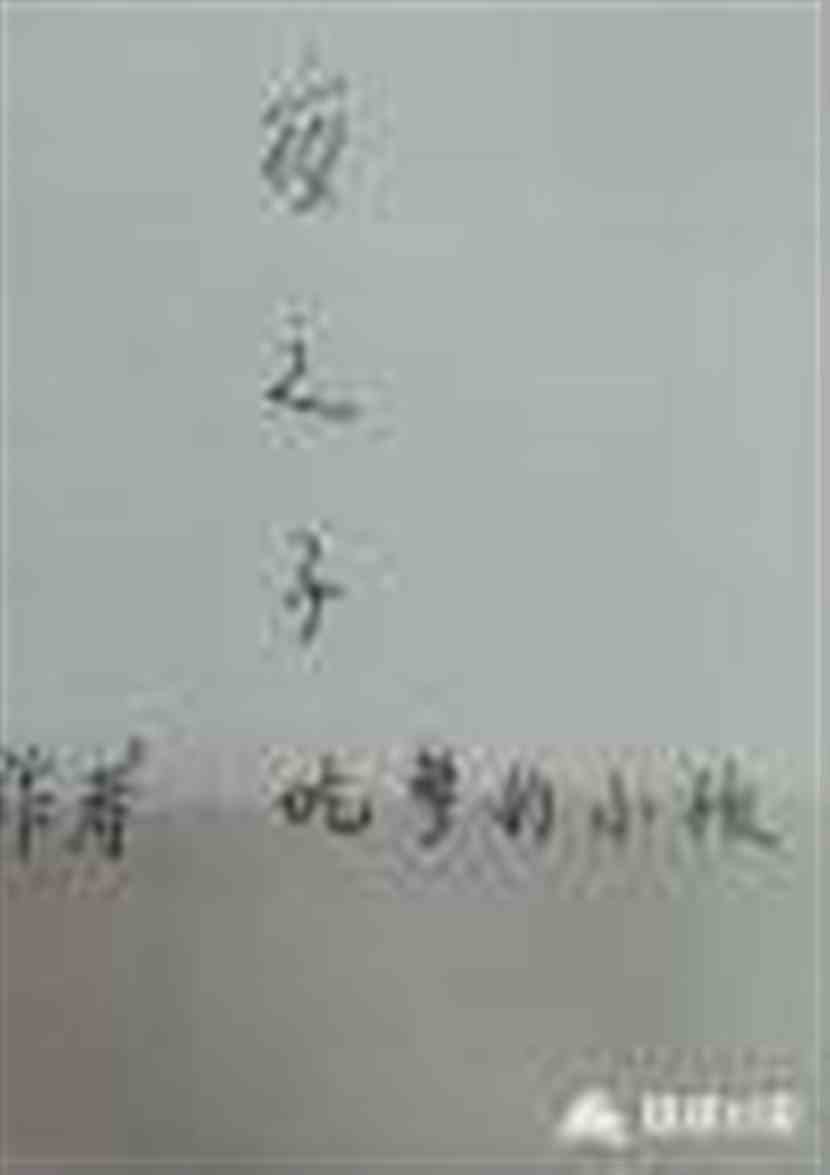 夜
之
子
作者 吃梦的小孩